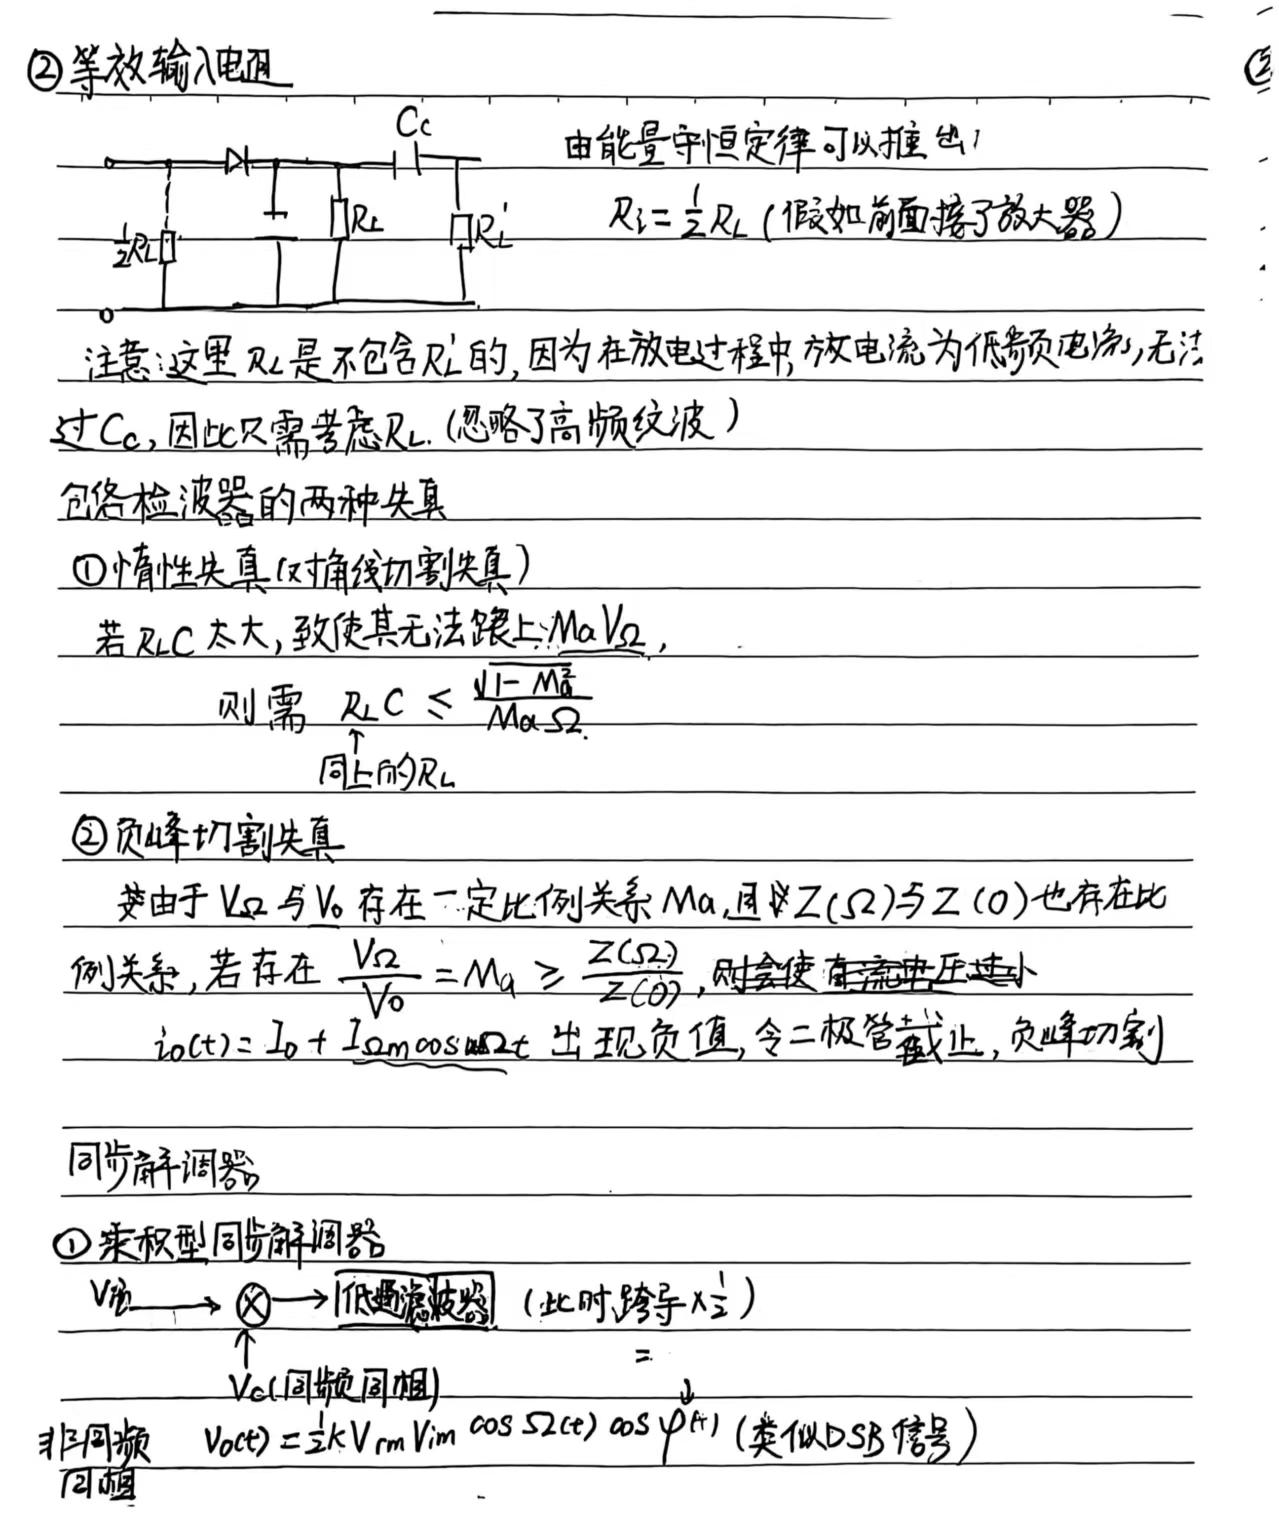 ②等效输入电阻
Cc
由能量守恒定律可以推出
½RL
RL
RL'
Ri = ½RL (假如前面接了放大器)
注意:这里RL是不包含RL'的,因为在放电过程中,放电流为低频电流,无法
过Cc,因此只需考虑RL.(忽略了高频纹波)
包络检波器的两种失真
①惰性失真(对角线切割失真)
若RLC太大,致使其无法跟上MaVΩ,
则需 RLC ≤ √(1-Ma²) / MaΩ.
↑
同上的RL
②负峰切割失真
由于VΩ与V0存在一定比例关系Ma,且Z(Ω)与Z(0)也存在比
例关系,若存在 VΩ/V0 = Ma ≥ Z(Ω)/Z(0),则会使直流电压过小
i0(t) = I0 + IΩm cosΩt 出现负值,令二极管截止,负峰切割
同步解调器
①乘积型同步解调器
→ ⊗ → 低通滤波器 (此时跨导×½)
↑
Vc(同频同相)
非同频 Vo(t) = ½kVrmVim cosΩ(t) cosφ(t) (类似DSB信号)
同相
②